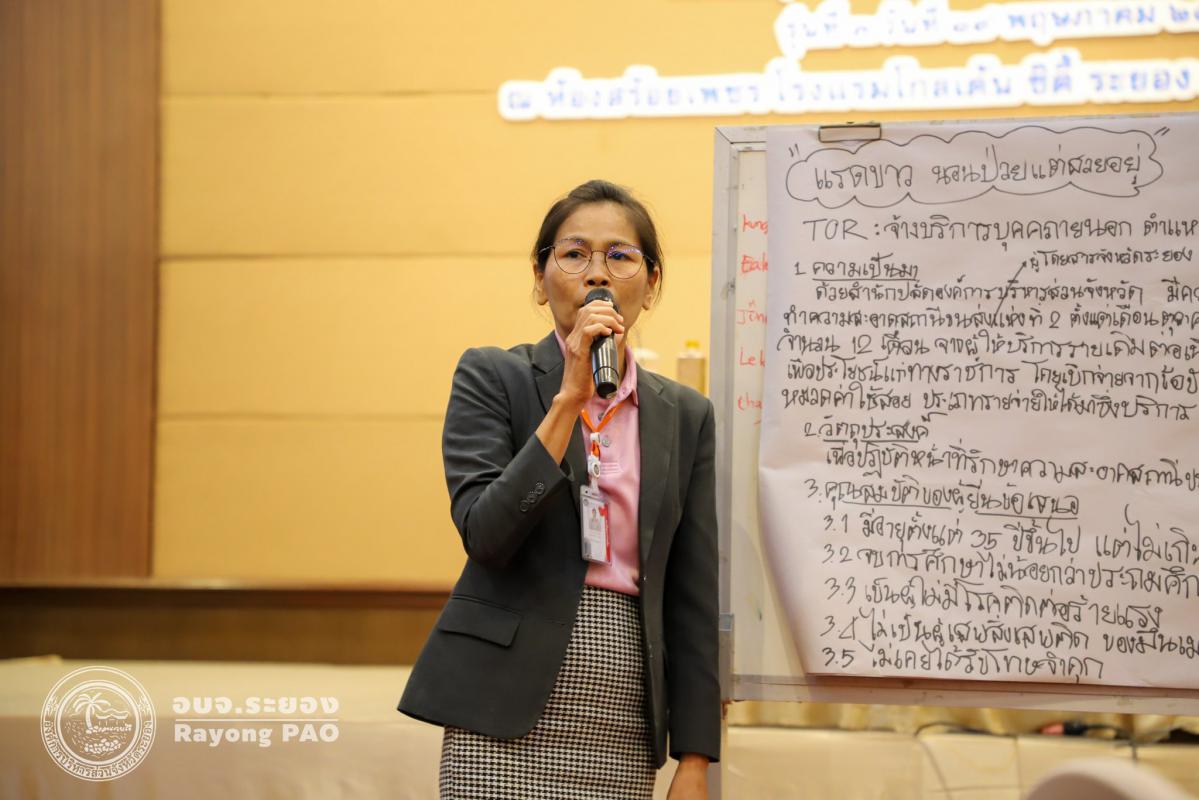 รุ่นที่ ๓ วันที่ ๑๙ พฤษภาคม
ณ ห้องสร้อยเพชร โรงแรมโกลเด้น ซิตี้ ระยอง
"แรดขาว นอนป่วยแต่สวยอยู่"
TOR : จ้างบริการบุคคลภายนอก ตำแห
ผู้โดยสารจังหวัดระยอง
1. ความเป็นมา
ด้วยสำนักปลัดองค์การบริหารส่วนจังหวัด มีคว
ทำความสะอาดสถานีขนส่งแห่งที่ 2 ตั้งแต่เดือน ตุลาค
จำนวน 12 เดือน จากผู้ให้บริการรายเดิมต่อเนื่
เพื่อประโยชน์แก่ทางราชการ โดยเบิกจ่ายจากข้อบั
หมวดค่าใช้สอย ประเภทรายจ่ายให้ได้มาซึ่งบริการ
2. วัตถุประสงค์
เพื่อปฏิบัติหน้าที่รักษาความสะอาดสถานีข
3. คุณสมบัติของผู้ยื่นข้อเสนอ
3.1 มีอายุตั้งแต่ 35 ปีขึ้นไป แต่ไม่เกิน
3.2 จบการศึกษาไม่น้อยกว่าประถมศึก
3.3 เป็นผู้ไม่มีโรคติดต่อร้ายแรง
3.4 ไม่เป็นผู้เสพสิ่งเสพติด ของมึนเม
3.5 ไม่เคยได้รับโทษจำคุก
อบจ.ระยอง
Rayong PAO
องค์การบริหารส่วนจังหวัดระยอง